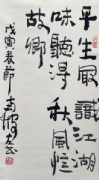 平生最識江湖
味聽得秋風憶
故鄉
戊寅春節